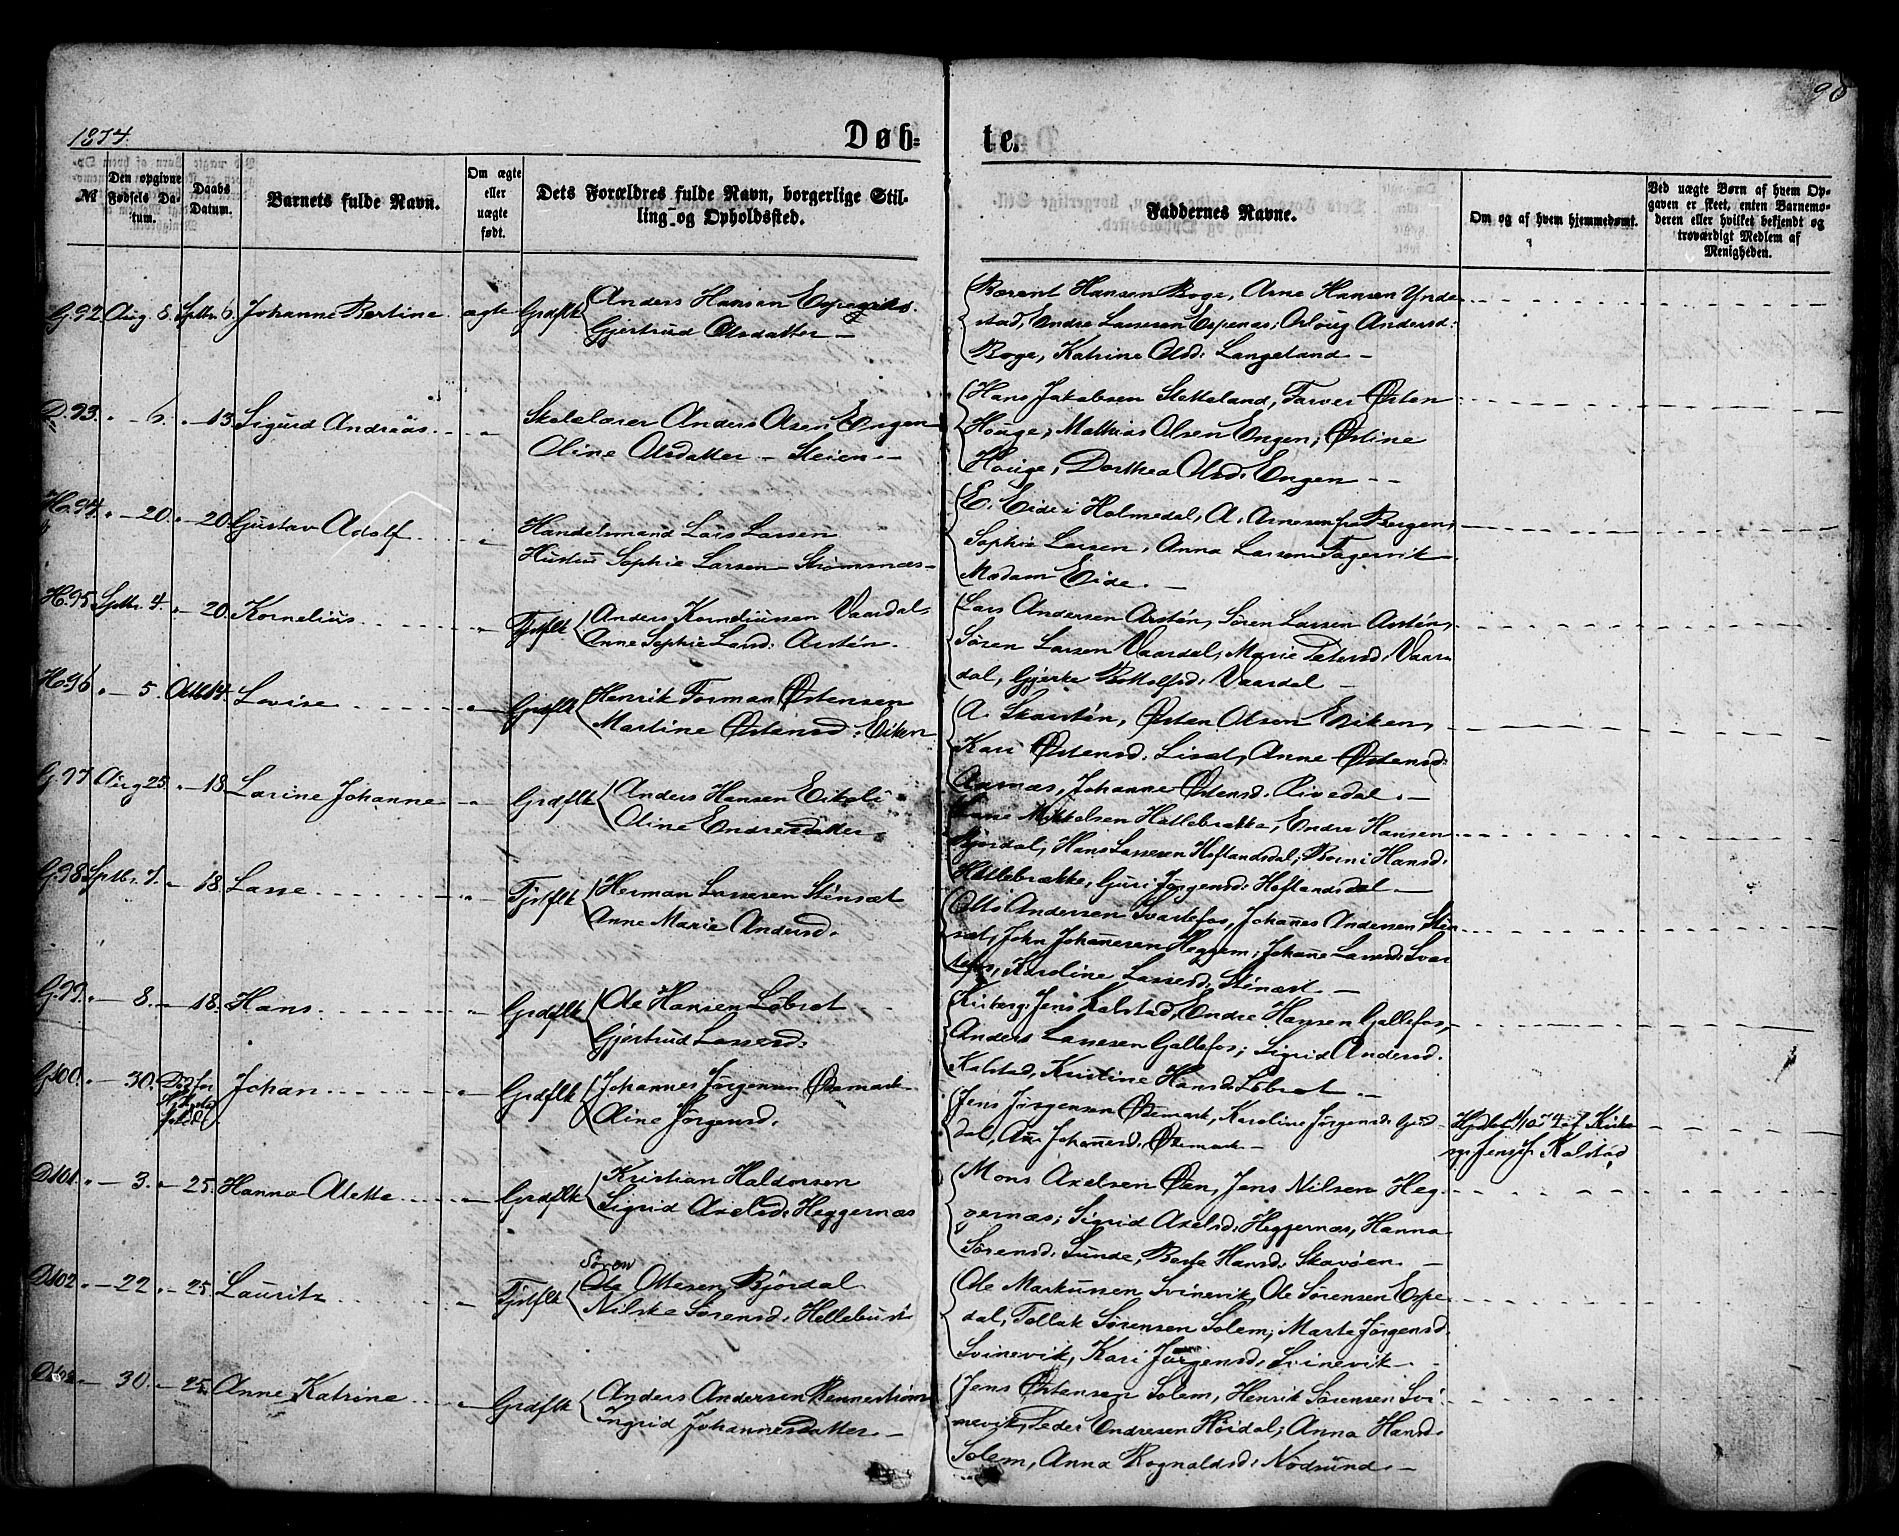 1874.
Døb-
te.
90
№
Den opgivne Fødsels Datum.
Daabs Datum.
Barnets fulde Navn.
Om ægte eller uægte født.
Dets Forældres fulde Navn, borgerlige Stilling og Opholdssted.
Faddernes Navne.
Om og af hvem hjemmedøbt.
Ved uægte Børn af hvem Opgaven er skeet, enten Barnemoderen eller hvilket bekjendt og troværdigt Medlem af Menigheden.
G. 92. Aug. 8. Sptbr. 6. Johanne Bertine ægte Grdflk Anders Hansen
Gjertrud Olsdatter –
Bærent Hansen Boge, Arne Hansen Ynde-
stad, Endre Lassesen Espenæs; Oloug Andersd:
Boge, Katrine Olsd: Langeland –
D. 93. " – 6. " – 13. Sigurd Andreas. " Skolelærer Anders Olsen Engen
Oline Olsdatter – Steien –
Hans Jakobsen Sletteland, Farver Østen
Houge, Mathias Olsen Engen; Østine
Houge, Dorthea Olsd: Engen – –
H. 94. " – 20. " – 20. Gustav Adolf " Handelsmand Lars Larsen
Hustru Sophie Larsen – Strømsnæs –
E. Eide i Holmedal, A. Arnesen fra Bergen,
Sophie Larsen, Anna Larsen Fagervik
Madam Eide. –
H. 95. Sptbr. 4. " – 20. Kornelius " Fjstflk Anders Korneliussen Vaardal,
Anne Sophie Larsd: Arstén.
Lars Andersen Arstén, Søren Larsen Arstén,
Søren Larsen Vaardal, Marie Petersd: Vaar-
dal, Gjerke Bottolfsd: Vaardal –
H. 96. " – 5. Octb 14. Lovise " Grdflk Henrik Forman Østensen
Martine Østensd: Eiken
A. Skarstén, Østen Olsen Eiken,
Kari Østensd: Liset, Anne Østensd:
Aarnæs, Johanne Østensd. Rivedal. –
G. 97. Aug 25. " – 18. Larine Johanne " Grdflk Anders Hansen Eikeli
Oline Endresdatter.
Mikkelsen Hatlebrække, Endre Hansen
Bjordal, Hans Lassesen Hoflandsdal; Børni Hansd:
Hatlebrække, Guri Jørgensd: Hoflandsdal –
G. 98. Sptb. 7. – 18. Lasse " Fjstflk Herman Lassesen Stensæt
Anne Marie Andersd.
Otto Andersen Svartefos, Johanes Andersen Sten-
sæt, John Johanesen Hegrem, Johane Larsd: Svar-
tefos, Karoline Lassesd: Stensæt –
G. 99. " – 8. – 18. Hans " Grdflk Ole Hansen Løbset
Gjertrud Lassesd:
Kirkesg: Jens Kalstad, Endre Hansen Gallefos,
Anders Lassesen Gallefos; Sigrid Andersd.
Kalstad, Kristine Hansd: Løbset –
G. 100. " – 30. Død for Johan " Grdflk Johannes Jørgensen Ødemark
Oline Jørgensd.
Jens Jørgensen Ødemark, Karoline Jørgensd:
dal, Ane Johanesd: Ødemark –
Hjdbt af Kirke-
sg: Jens Kalstad
D. 101. " – 3. " – 25. Hanna Olette " Grdflk Kristian Haldorsen
Sigrid Axelsd: Heggernæs
Mons Axelsen Øen, Jens Nilsen Heg-
gernæs; Sigrid Axelsd: Heggernæs, Hanna
Sørensd: Sunde, Berte Hansd: Skavøen. –
D. 102. " – 22. " – 25. Lauritz " Fjstflk Søren
Ole Ottesen Bjordal
Nilske Sørensd: Hellebust
Ole Markussen Svinevik, Ole Sørensen Espe-
dal, Tollak Sørensen Solem, Marte Jørgensd.
Svinevik, Kari Jørgensd: Svinevik –
" – 30. – 25. Anne Katrine " Grdflk Anders Andersen Rennestion
Ingrid Johannesdatter. –
Jens Østensen Solem, Henrik Sørensen Svi-
nevik, Peder Endresen Høidal; Anna Hansd.
Solem, Anna Rognaldsd: Nødsund. –